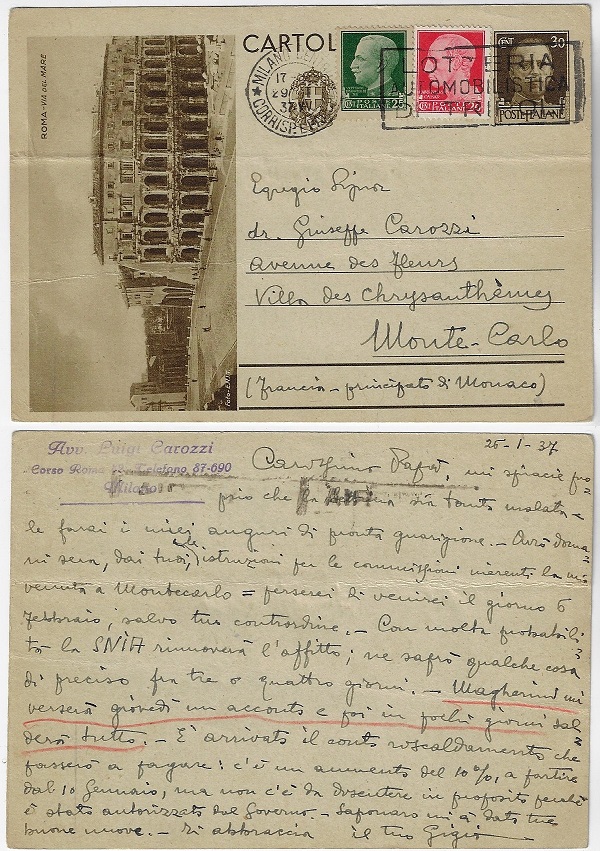 ROMA - VIA DEL MARE
CARTOL
MILANO
CORRISP
17
29
37 XV
POSTE ITALIANE 25
POSTE ITALIANE 20
CENT 30
POSTE ITALIANE
LOTTERIA
AUTOMOBILISTICA
DI TRIPOLI
Foto-ENIT
Egregio Signor
dr. Giuseppe Carozzi
Avenue des Fleurs
Villa des Chrysanthèmes
Monte-Carlo
(Francia - principato di Monaco)
Avv. Luigi Carozzi
Corso Roma Telefono 87-690
Milano
25-1-37
Carissimo Papà, mi spiacie pro=
prio che la sia tanto malata -
le farai i miei auguri di pronta guarigione. - Avrò doma=
ni sera, dai tuoi, le istruzioni per le commissioni inerenti la mia
venuta a Montecarlo = penserei di venirci il giorno 6
febbraio, salvo tuo contrordine. - Con molta probabili=
tà la SNIA rinnoverà l'affitto; ne saprò qualche cosa
di preciso fra tre o quattro giorni. - Magherini mi
verserà giovedì un acconto e poi in pochi giorni sal=
derà tutto. - E' arrivato il conto riscaldamento che
passerò a pagare: c'è un aumento del 10%, a partire
dal 10 Gennaio, ma non c'è da discutere in proposito perché
è stato autorizzato dal Governo. - Saponaro mi à dato tue
buone nuove. - Ti abbraccia il tuo Gigio